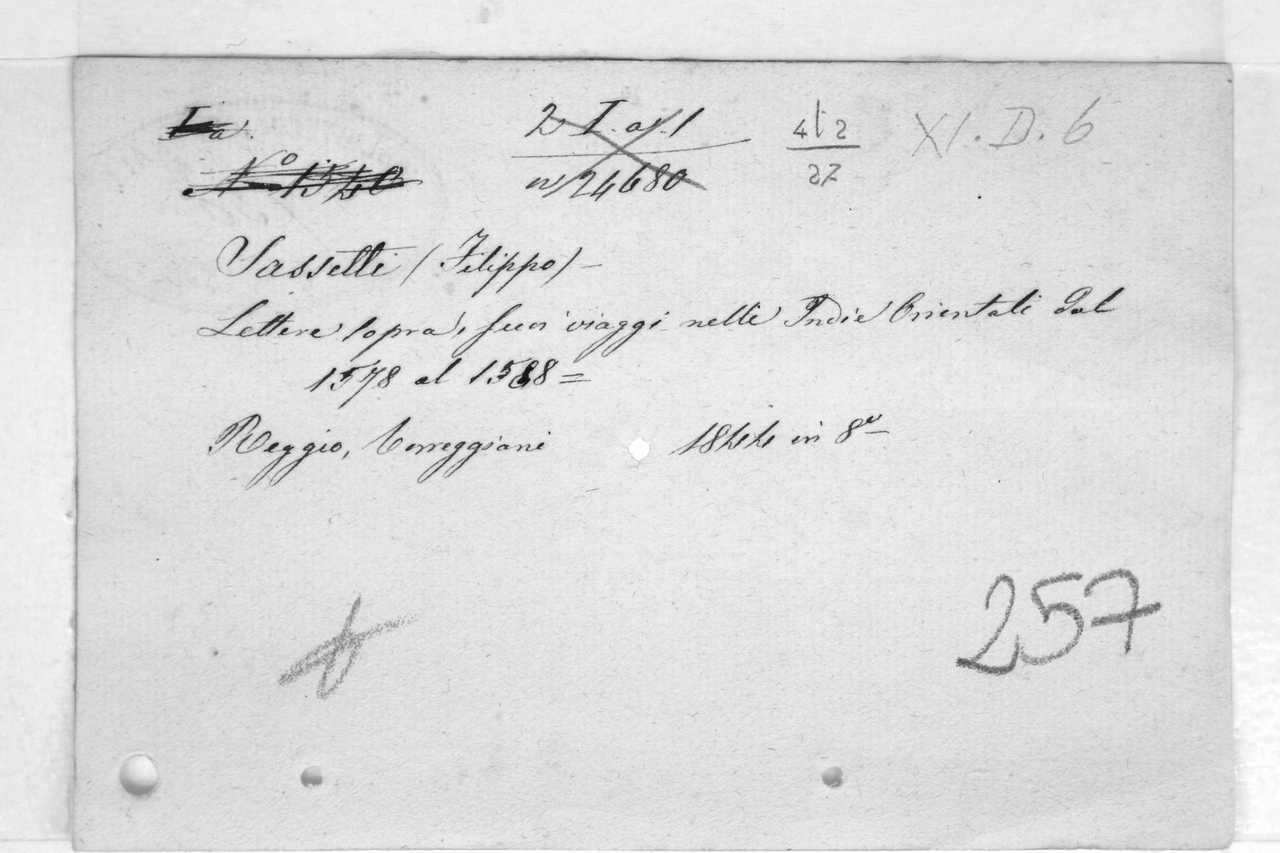 I a.
2 I. a. 1
4 I 2
XI. D. 6
N.º 1540
n 24680
27
Sassetti (Filippo) –
Lettere sopra i suoi viaggi nelle Indie Orientali dal
1578 al 1588 =
Reggio, Torreggiani 1844 in 8º
257